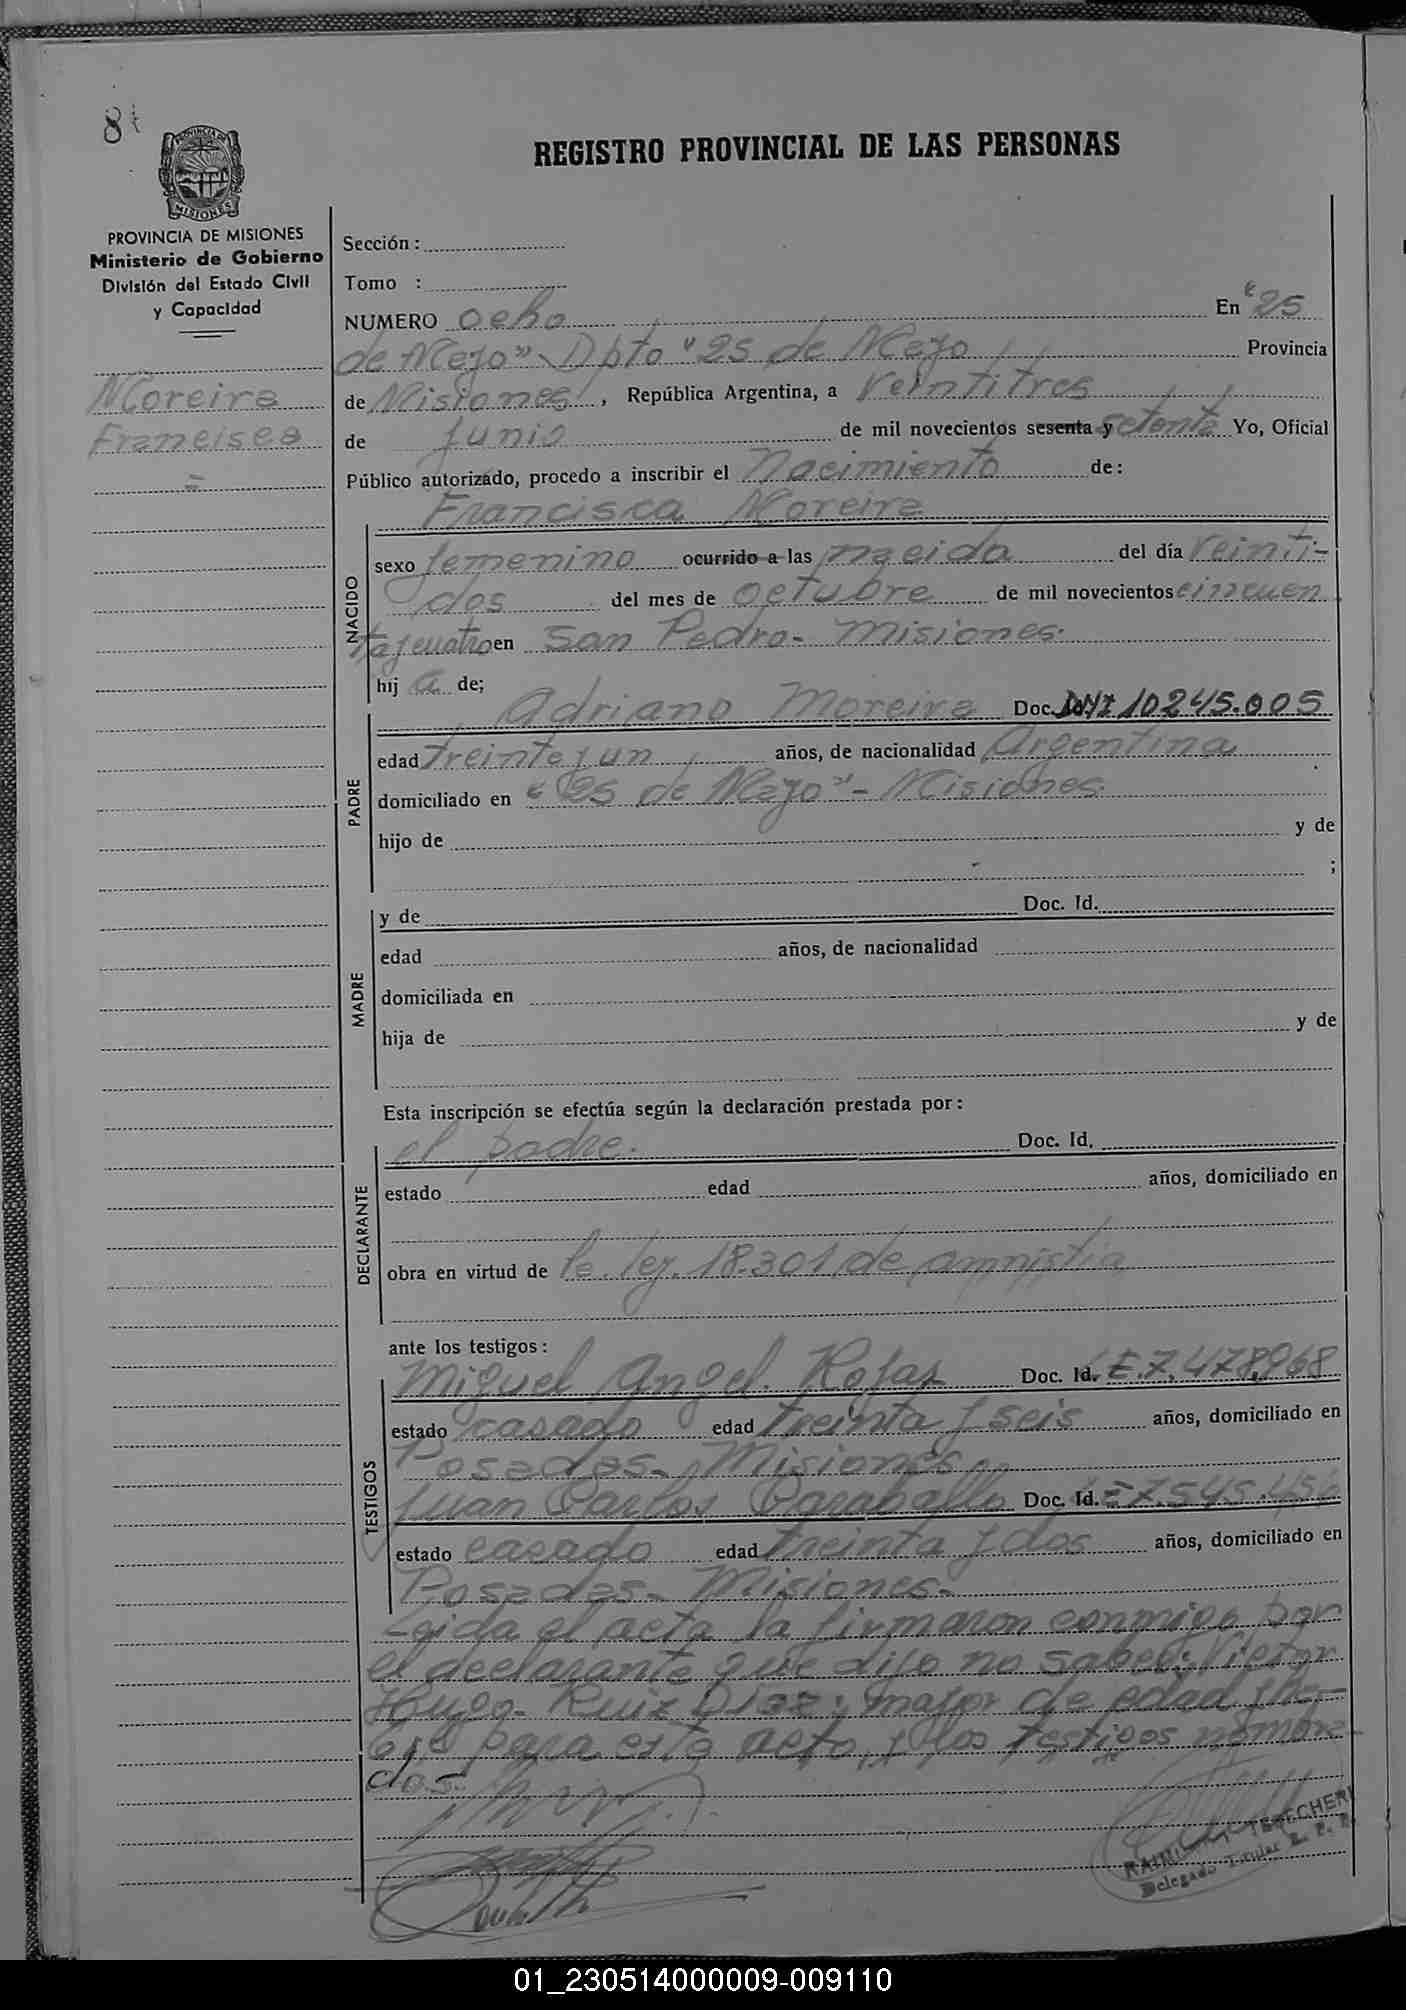 8
REGISTRO PROVINCIAL DE LAS PERSONAS
PROVINCIA DE
MISIONES
PROVINCIA DE MISIONES
Ministerio de Gobierno
División del Estado Civil
y Capacidad
Moreira
Francisca
=
Sección :
Tomo :
NUMERO ocho En "25
de Mayo" Dpto "25 de Mayo Provincia
de Misiones , República Argentina, a veintitres
de junio de mil novecientos sesenta y setenta Yo, Oficial
Público autorizado, procedo a inscribir el Nacimiento de:
Francisca Moreira
NACIDO
sexo femenino ocurrido a las nacida del día veinti-
dos del mes de octubre de mil novecientos cincuen
ta y cuatro en San Pedro- Misiones.
hij a de;
PADRE
Adriano Moreira Doc. DNI 10245.005
edad treinta y un años, de nacionalidad Argentina
domiciliado en "25 de Mayo"- Misiones.
hijo de y de
;
MADRE
y de Doc. Id.
edad años, de nacionalidad
domiciliada en
hija de y de
Esta inscripción se efectúa según la declaración prestada por:
DECLARANTE
el padre. Doc. Id.
estado edad años, domiciliado en
obra en virtud de la ley. 18.301 de amnistía
ante los testigos:
TESTIGOS
Miguel Angel Rojas Doc. Id. E.7.478.968
estado casado edad treinta y seis años, domiciliado en
Posadas- Misiones
Juan Carlos Caraballo Doc. Id. 7.545.
estado casado edad treinta y dos años, domiciliado en
Posadas- Misiones-
el acta la firmaron conmigo por
el declarante que dijo no saber: Victor
Hugo Ruiz Diaz; mayor de edad y
para este acto y los testigos nombra-
dos.
Delegado Titular R. P. P.
01_230514000009-009110